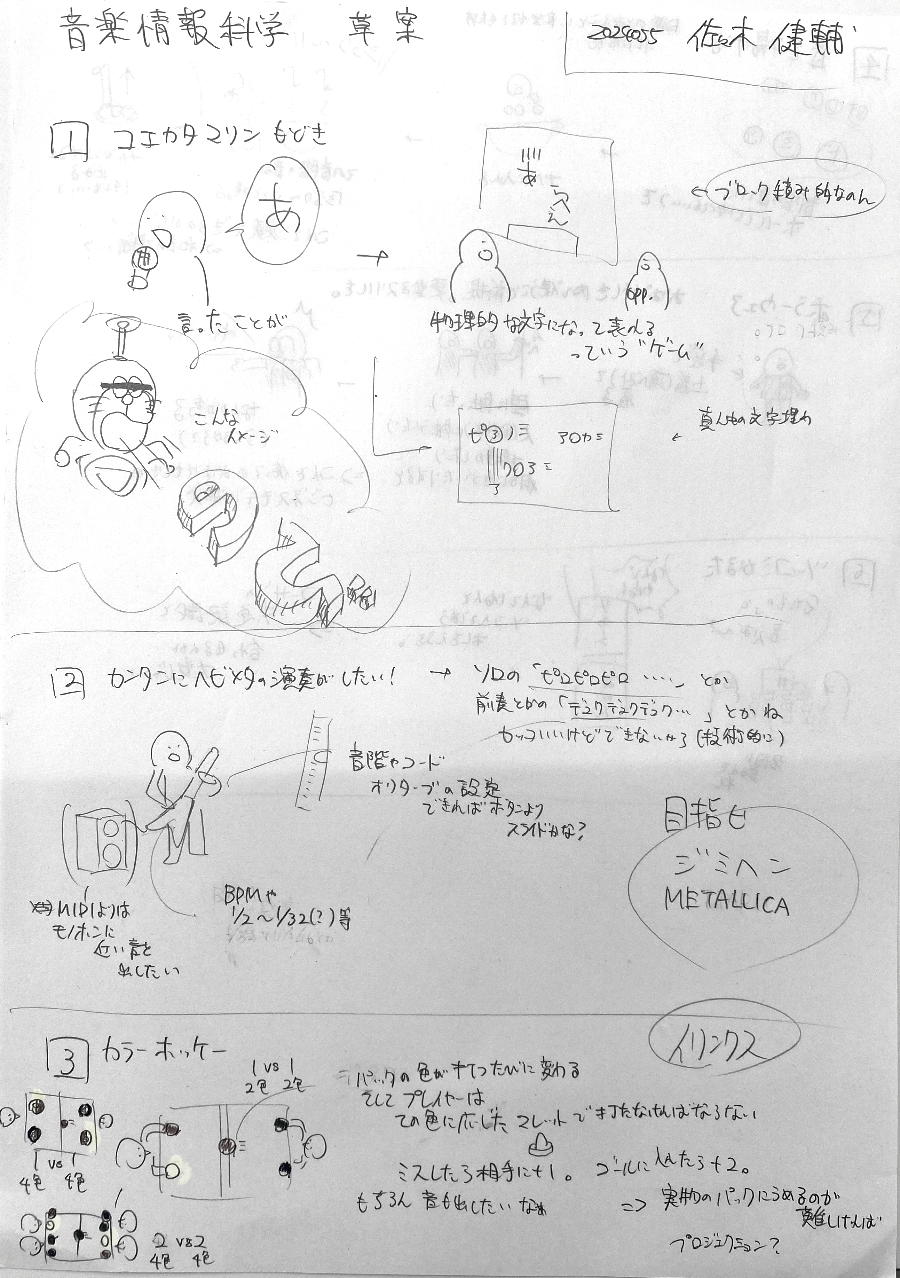 音楽情報科学 草案
2024055 佐々木 健輔
1 コエカタマリンもどき
あ
言ったことが
→
あ
物理的な文字になって表れる
っていう"ゲーム"
← ブロック積み的なのん
こんな
イメージ
2 カンタンにヘビメタの演奏がしたい! → ソロの「ピロピロピロ ‥‥」とか
前奏とかの「デュクデュクデュク…」とかね
カッコいいけどできないから(技術的に)
音階やコード
オクターブの設定
できればボタンより
スライドかな?
BPMや
1/2〜1/32(?)等
MIDIよりは
モノホンに
近い音を
出したい
目指せ
ジミヘン
METALLICA
イリンクス
3 カラーホッケー
1 vs 1
2色 2色
1 vs 1
4色 4色
2 vs 2
4色 4色
パックの色が打つたびに変わる
そしてプレイヤーは
その色に応じたマレットで打たなければならない
ミスしたら相手に+1。 ゴールに入れたら+2。
もちろん音も出したいなぁ
⇒ 実物のパックにうめるのが
難しければ
プロジェクション?